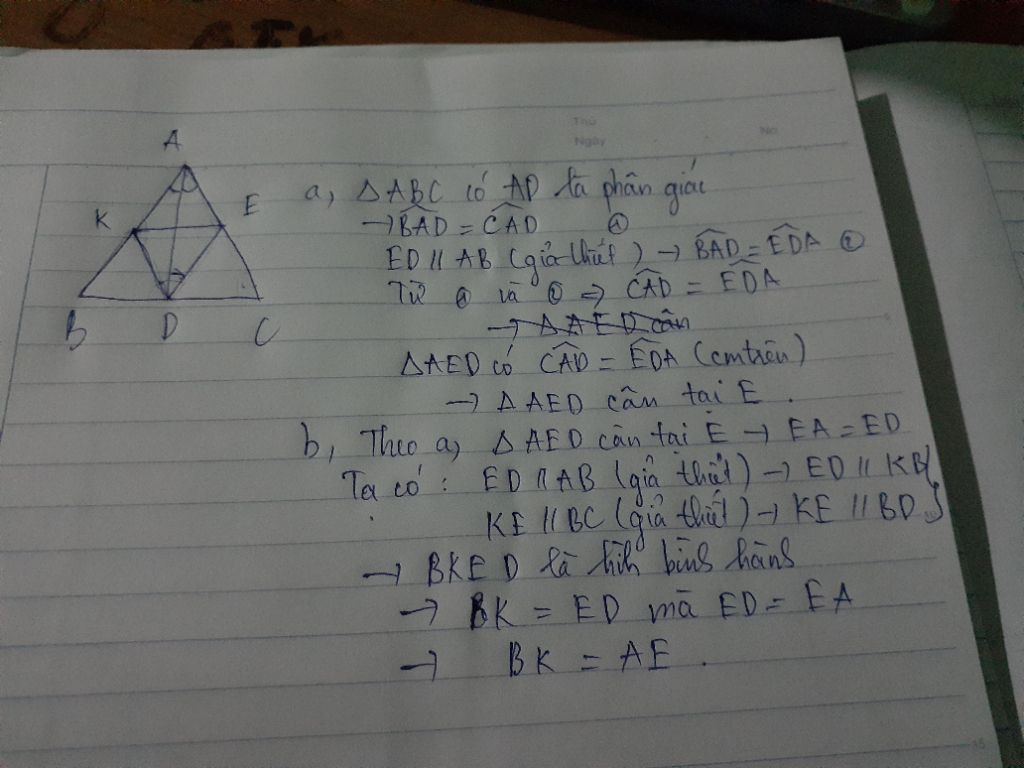 A
K
E
B
D
C
a, ΔABC có AD là phân giác
→ BAD^ = CAD^ ①
ED // AB (giả thiết) → BAD^ = EDA^ ②
Từ ① và ② ⇒ CAD^ = EDA^
→ ΔAED cân
ΔAED có CAD^ = EDA^ (cmtrên)
→ ΔAED cân tại E.
b, Theo a, ΔAED cân tại E → EA = ED
Ta có: ED // AB (giả thiết) → ED // KB
KE // BC (giả thiết) → KE // BD
→ BKED là hìh bìnš hànš
→ BK = ED mà ED = EA
→ BK = AE.
Thứ
Ngày
No